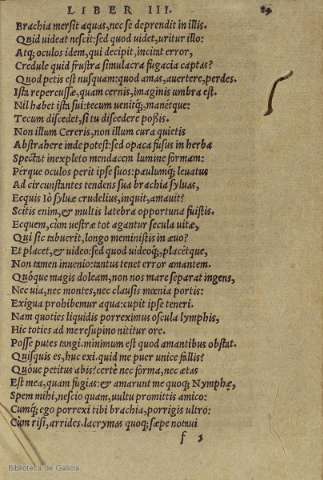 LIBER III. 89
Brachia mersit aquas, nec se deprendit in illis.
Quid uideat nescit: sed quod uidet, uritur illo:
Atq; oculos idem, qui decipit, incitat error,
Credule quid frustra simulacra fugacia captas?
Quod petis est nusquam: quod amas, auertere, perdes.
Ista repercussæ, quam cernis, imaginis umbra est.
Nil habet ista sui: tecum uenitq;, manetque:
Tecum discedet, si tu discedere poßis.
Non illum Cereris, non illum cura quietis
Abstrahere inde potest: sed opaca fusus in herba
Spectat inexpleto mendacem lumine formam:
Perque oculos perit ipse suos: paulumq; leuatus
Ad circunstantes tendens sua brachia syluas,
Ecquis iò syluæ crudelius, inquit, amauit?
Scitis enim, & multis latebra opportuna fuistis.
Ecquem, cùm uestræ tot agantur secula uitæ,
Qui sic tabuerit, longo meministis in æuo?
Et placet, & uideo: sed quod uideoq;, placetque,
Non tamen inuenio: tantus tenet error amantem.
Quoque magis doleam, non nos mare separat ingens,
Nec uia, nec montes, nec clausis mœnia portis:
Exigua prohibemur aqua: cupit ipse teneri.
Nam quoties liquidis porreximus oscula lymphis,
Hic toties ad me resupino nititur ore.
Posse putes tangi: minimum est quod amantibus obstat.
Quisquis es, huc exi. quid me puer unice fallis?
Quóue petitus abis? certè nec forma, nec ætas
Est mea, quam fugias: & amarunt me quoq; Nymphæ,
Spem mihi, nescio quam, uultu promittis amico:
Cumq; ego porrexi tibi brachia, porrigis ultro:
Cùm risi, arrides. lacrymas quoq; sæpe notaui
f
Biblioteca de Galicia